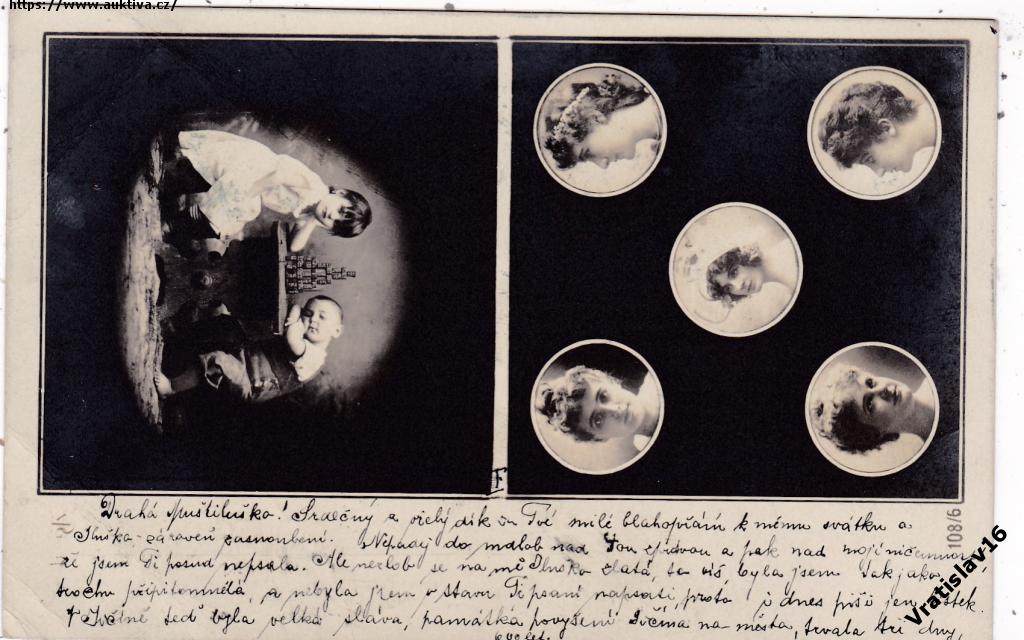 https://www.auktiva.cz/
F
108/6
Drahá Muštiluško! Srdečný a vřelý dík za Tvé milé blahopřání k mému svátku a
Iluška zároveň zasnoubení. Nepadej do mdlob nad tou zprávou a pak nad mojí
že jsem Ti posud nepsala. Ale nezlob se na mě Iluško zlatá, to víš, byla jsem tak jako
trochu připitomnělá, a nebyla jsem v stavu Ti psaní napsati, proto i dnes píši jen lístek.
V Jičíně teď byla velká sláva, památka povýšení Jičína na město, trvala tři dny,
600 let.
Vratislav16